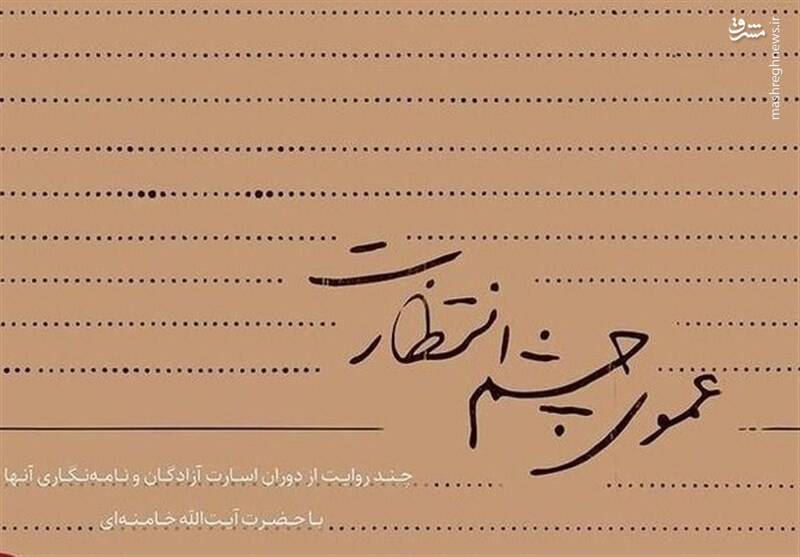 مشرق
mashreghnews.ir
عموی چشم انتظارت
چند روایت از دوران اسارت آزادگان و نامه‌نگاری آنها
با حضرت آیت‌الله خامنه‌ای